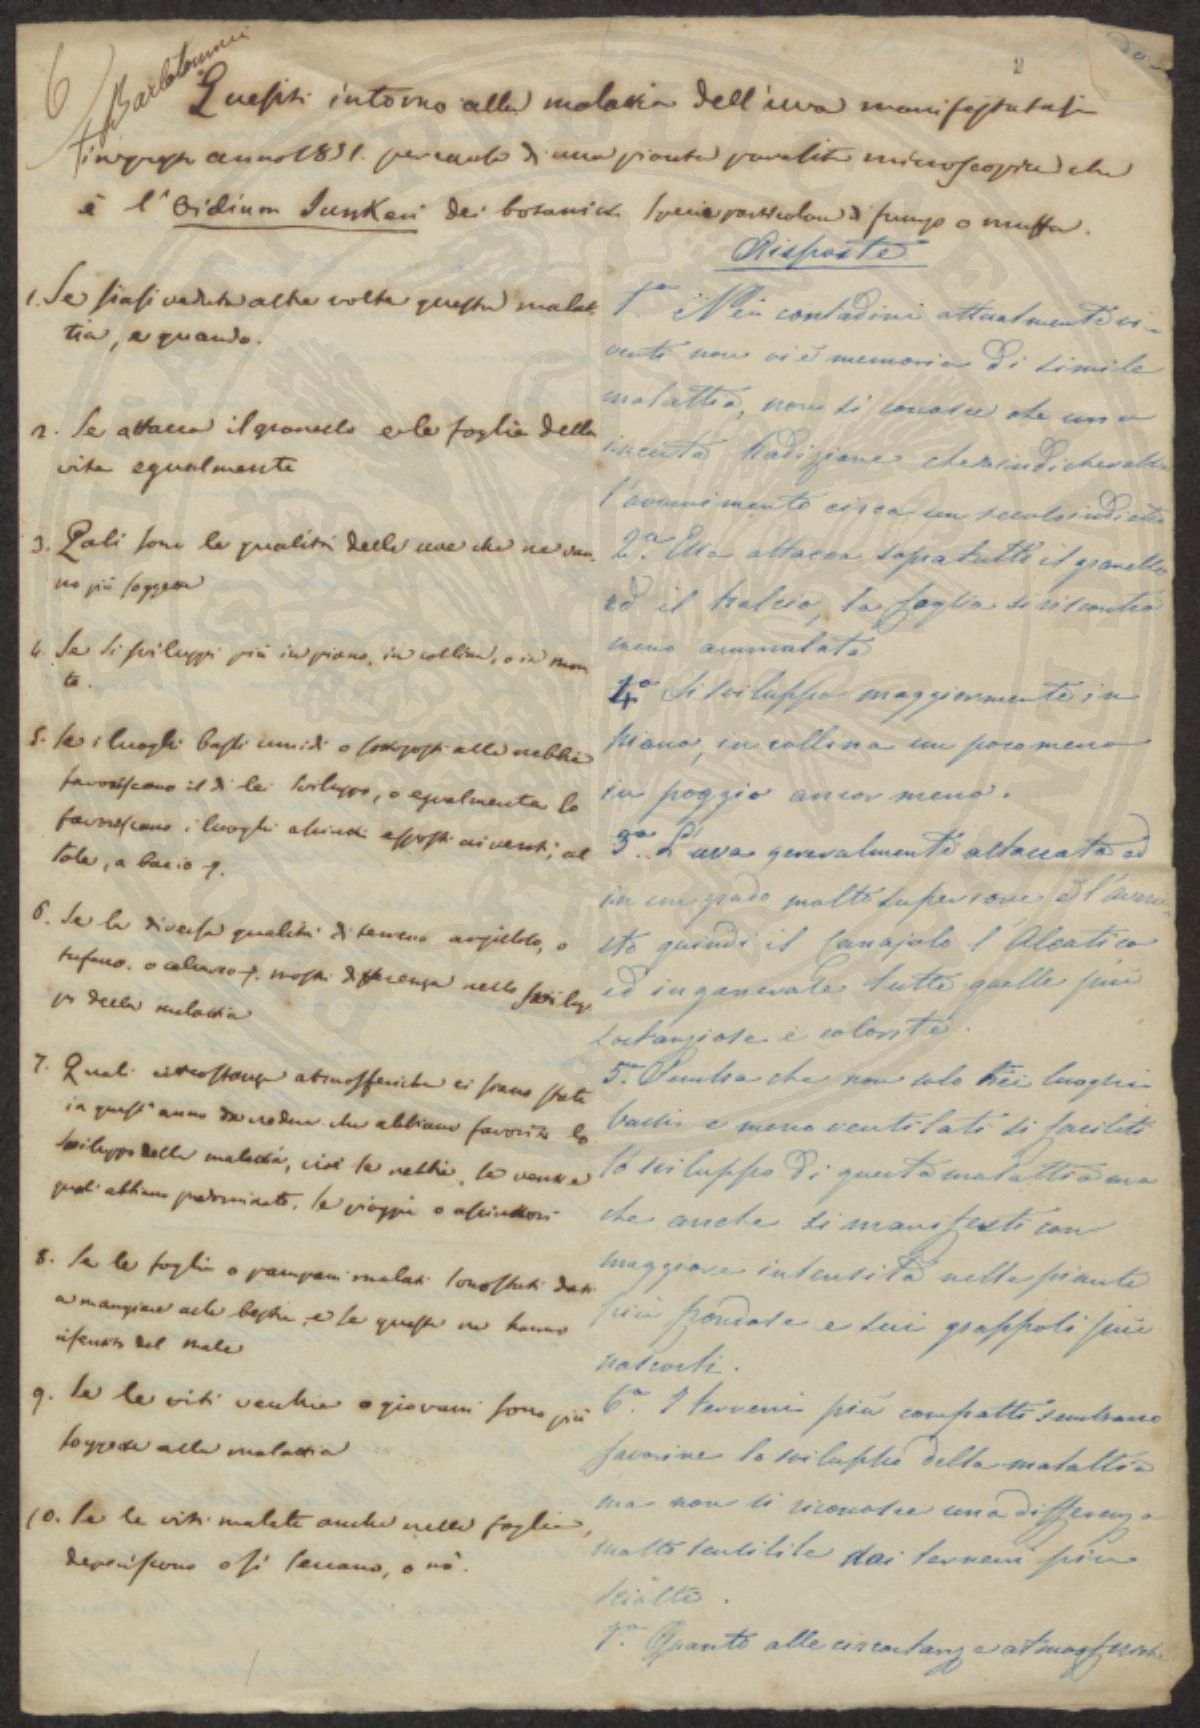 6
Bartolommei
2
Quesiti intorno alla malattia dell'uva manifestatasi
in quest'anno 1851. per causa di una pianta parasita microscopica che
è l'Oidium Tuckeri dei botanici specie particolare di fungo o muffa.
1. Se siasi veduta altre volte questa malat
tia, e quando.
2. Se attacca il granello e le foglie della
vite egualmente
3. Quali sono le qualità delle uve che ne van
no più soggette
4. Se si sviluppi più in piano, in collina, o in mon
te.
5. Se i luoghi bassi umidi o sottoposti alle nebbie
favoriscano il di lei sviluppo, o egualmente lo
favoriscano i luoghi asciutti esposti ai venti, al
sole, a bacio
6. Se la diversa qualità di terreno argilloso, o
tufaceo, o calcareo mostri differenza nello svilup
po della malattia
7. Quali circostanze atmosferiche ci siano state
in quest'anno da credere che abbiano favorito lo
sviluppo della malattia, cioè le nebbie, le venti e
quali abbiano predominato, le pioggie o asciuttori
8. Se le foglie o pampani malati sono stati dati
a mangiare alle bestie, e se queste ne hanno
risentito del male
9. Se le viti vecchie o giovani sono più
soggette alla malattia
10. Se le viti malate anche nelle foglie,
deperiscono o si seccano, o nò.
Risposte
1a. Nei contadini attualmente vi-
venti non vi è memoria di simile
malattia, non si conosce che una
incerta tradizione che
l'avvenimento circa un secolo indietro
2a. Essa attacca sopratutto il granello
ed il tralcio, la foglia si riscontra
meno ammalata
4a Si sviluppa maggiormente in
piano, in collina un poco meno
in poggio ancor meno.
3a. L'uva generalmente attaccata ed
in un grado molto superiore è
quindi il Canajolo l'Aleatico
ed in generale tutte quelle più
e colorite.
5a. Sembra che non solo nei luoghi
bassi e meno ventilati si faciliti
lo sviluppo di questa malattia ma
che anche si manifesti con
maggiore intensità nelle piante
più frondose e sui grappoli più
nascosti.
6a. I terreni più compatti sembrano
favorire lo sviluppo della malattia
ma non si riconosce una differenza
molto sensibile dai terreni più
sciolti.
7a. Quanto alle circostanze atmosferiche